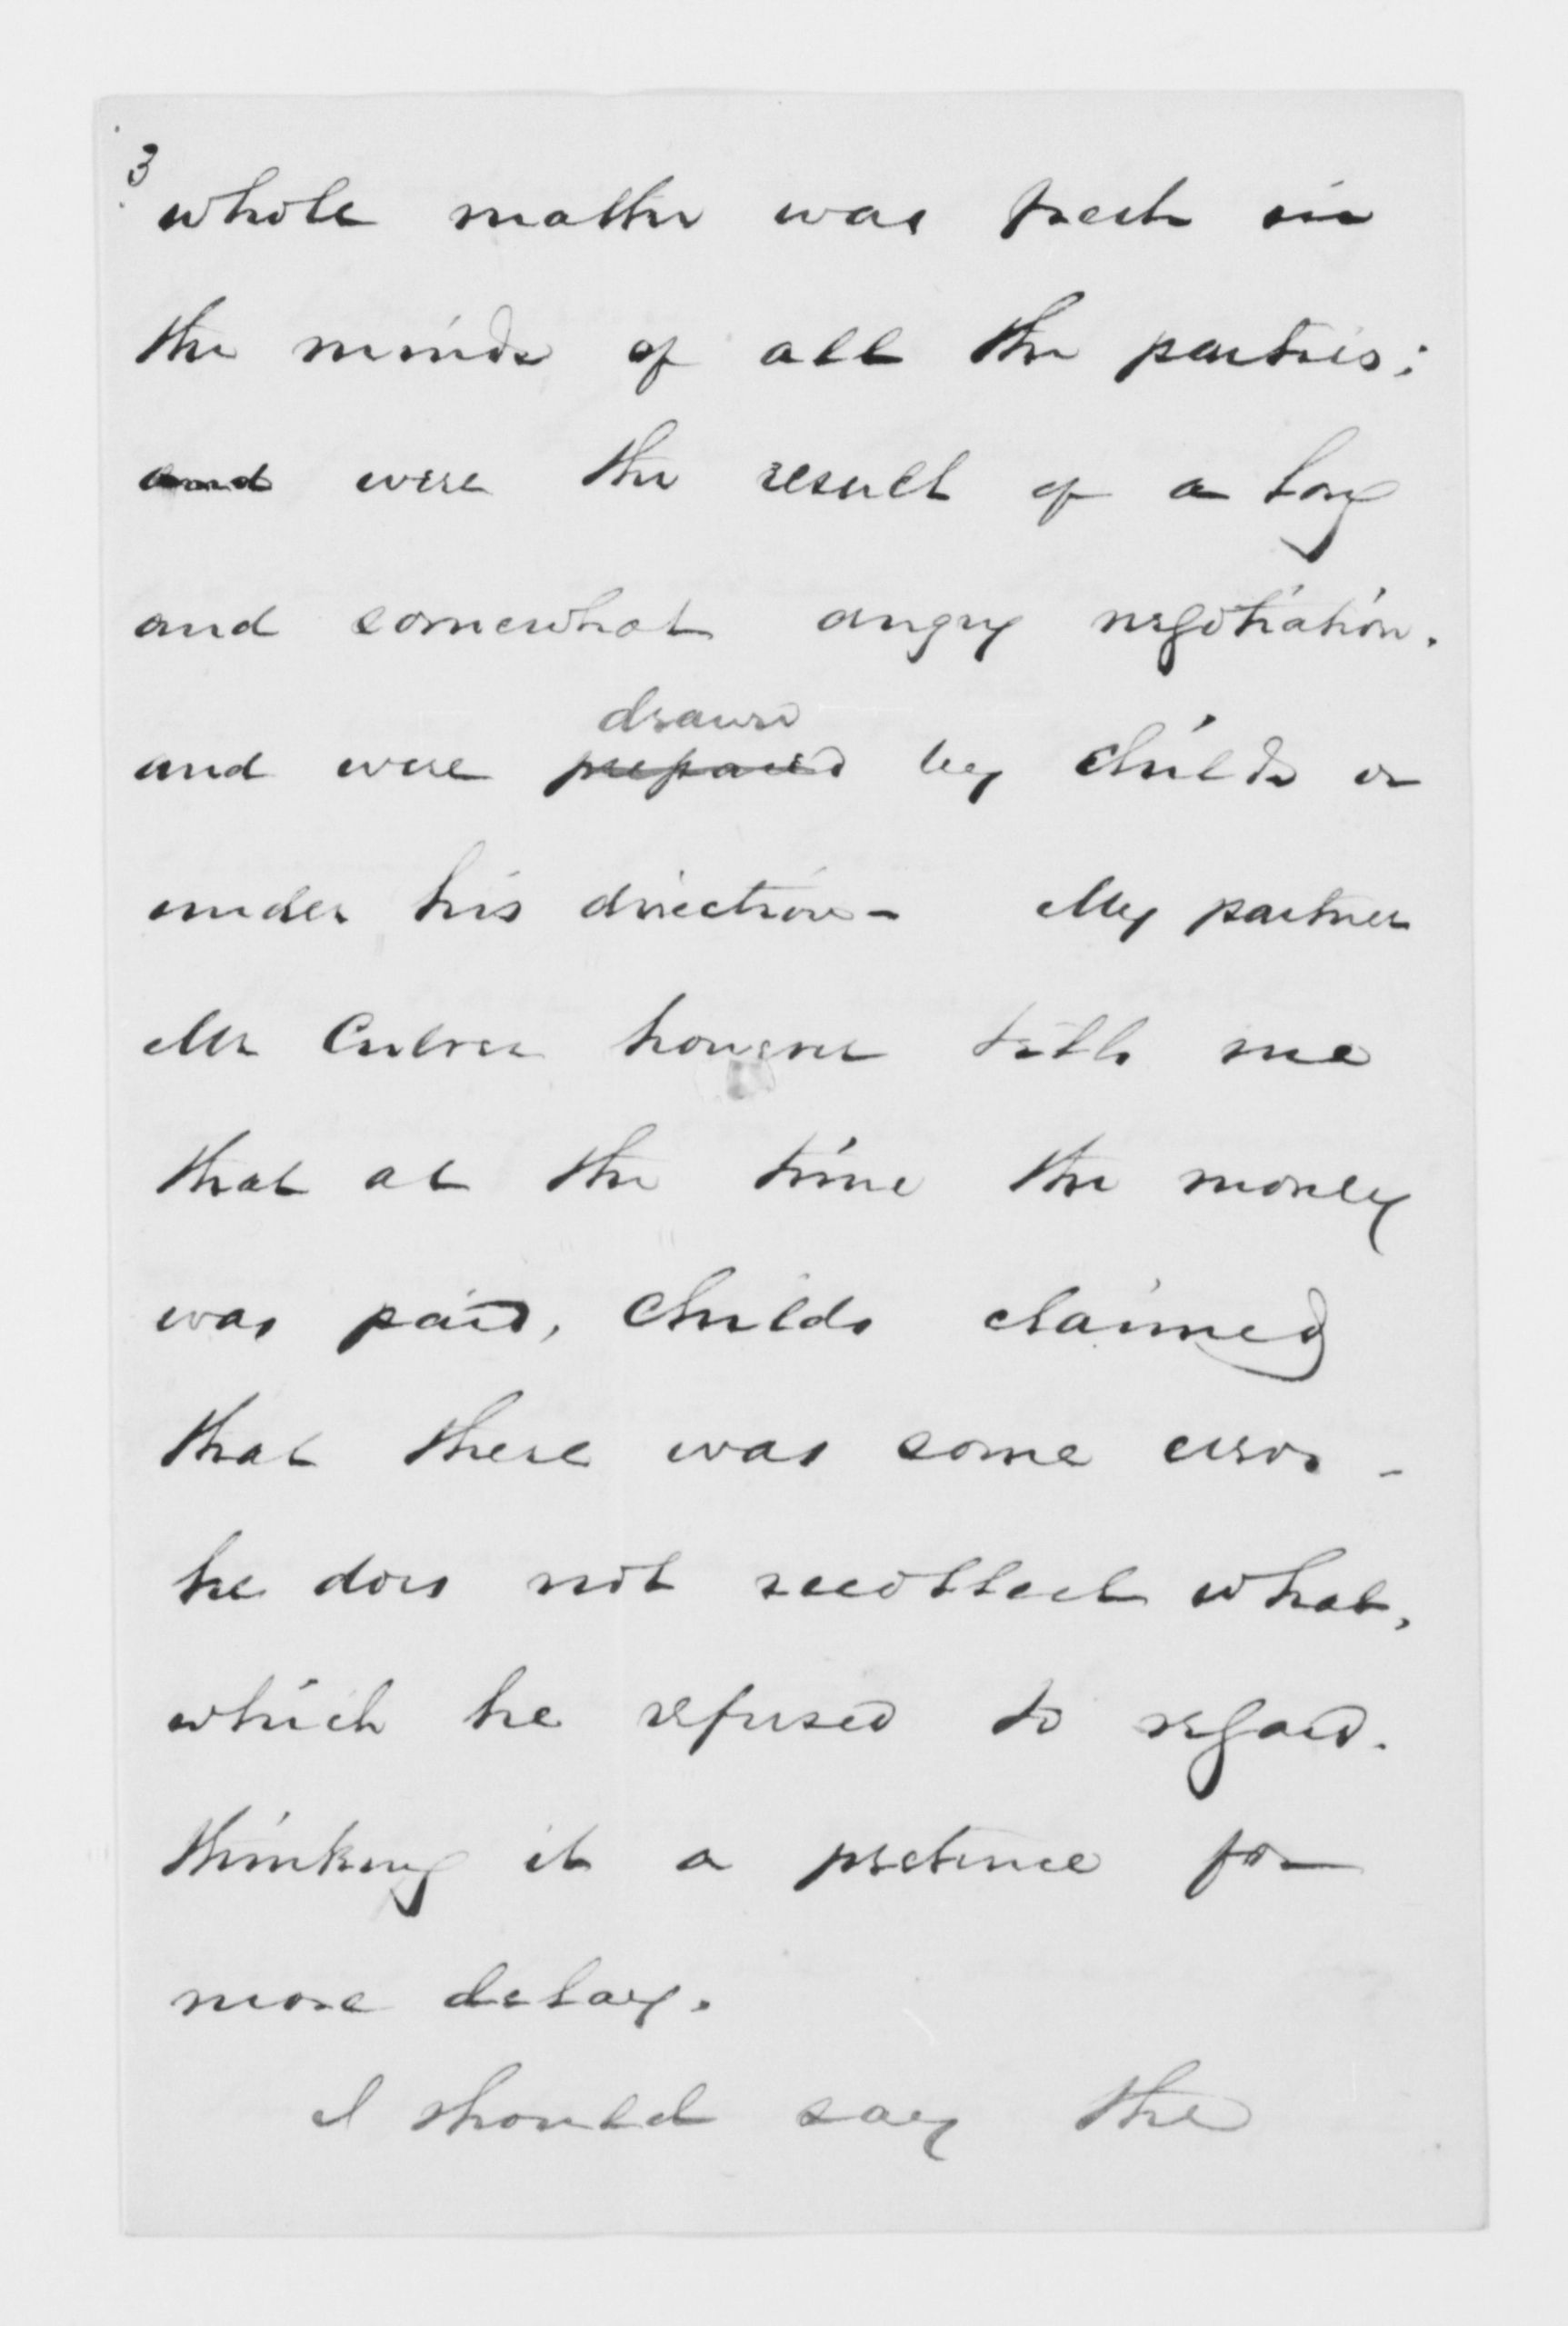 3
whole matter was fresh in
the minds of all the parties;
and were the result of a long
and somewhat angry negotiation.
drawn
and were prepared by Childs or
under his direction- My partner
Mr Culver however tells me
that at the time the money
was paid, Childs claimed
that there was some error -
he does not recollect what,
which he refused to regard.
thinking it a pretence for
more delay.
I should say the